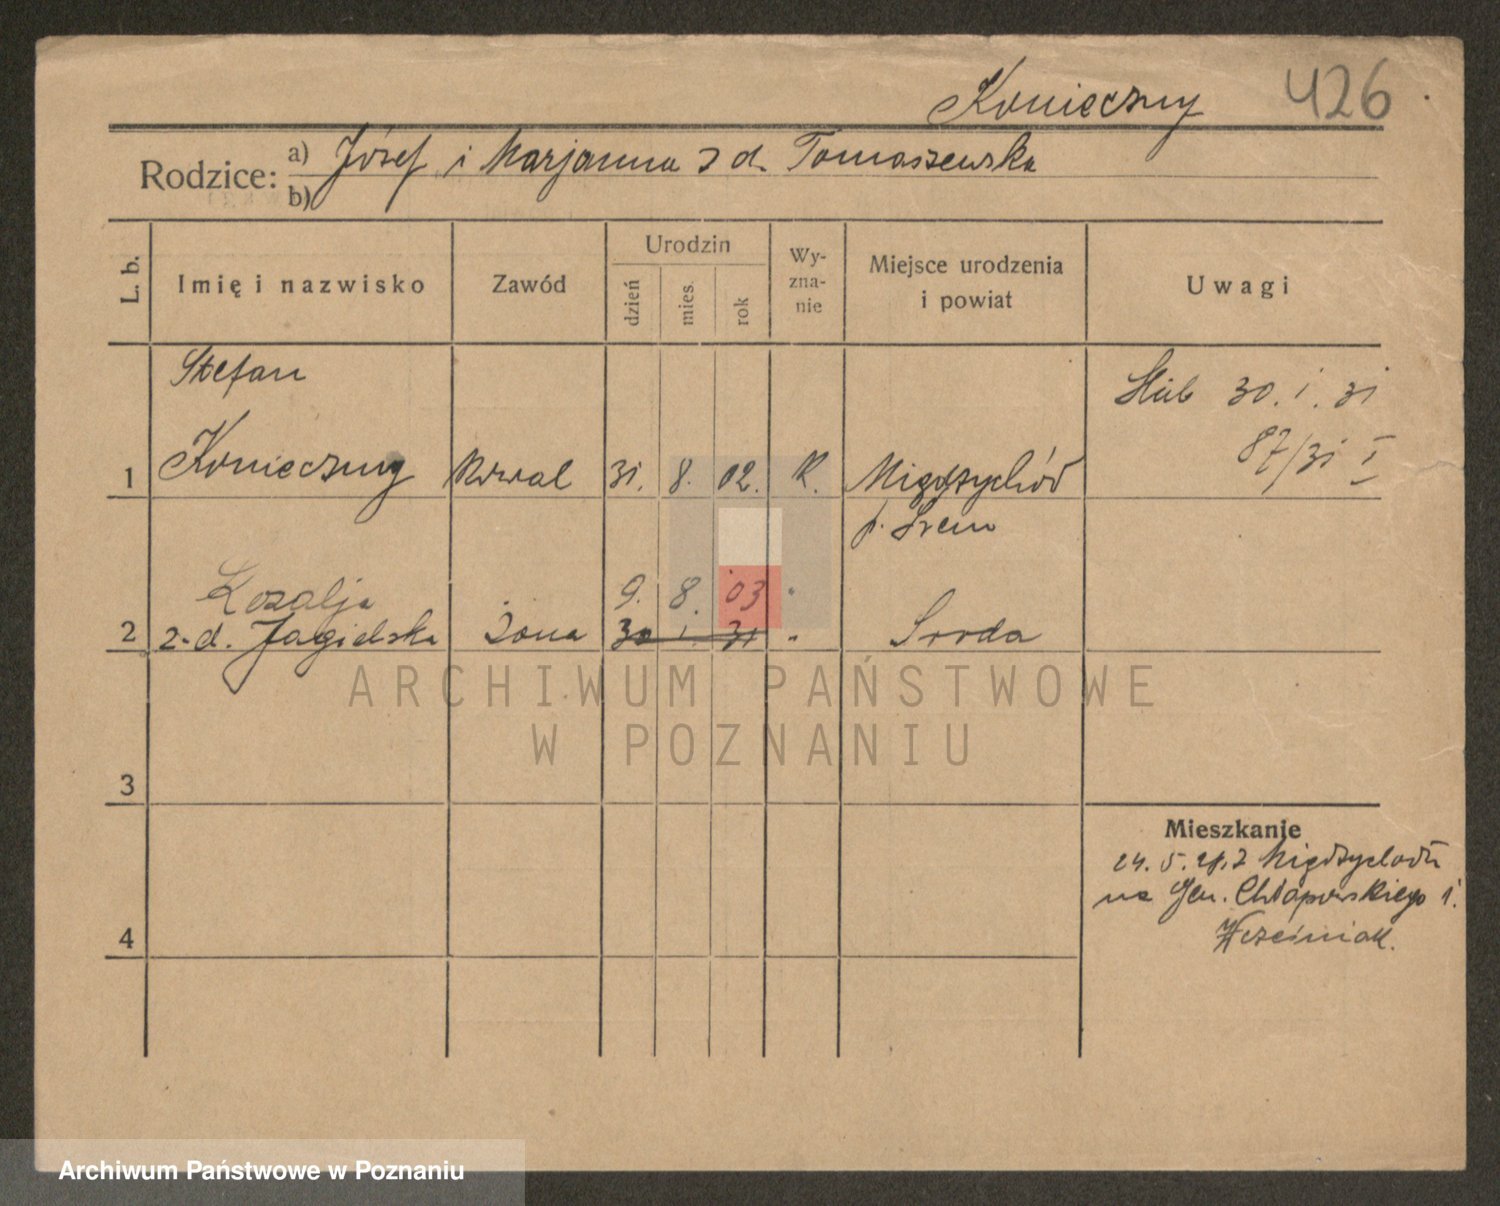 Konieczny 426
Rodzice: a) Józef i Marjanna z d. Tomaszewska
b)
L. b. Imię i nazwisko Zawód Urodzin dzień mies. rok Wy-zna-nie Miejsce urodzenia i powiat Uwagi
Stefan Ślub 30. i. 31
87/31 I
1 Konieczny Kowal 31. 8. 02. K. Międzychód
p. Śrem
Rozalja 9. 8. 03 "
2 z-d. Jagielska żona 30 i. 31 " Środa
ARCHIWUM PAŃSTWOWE
W POZNANIU
3
Mieszkanie
24. 5. z Międzychodu
na Gen. Chłapowskiego 1.
4 Wcześniak.
Archiwum Państwowe w Poznaniu